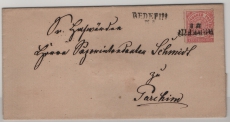 REDEFIN
REDEFIN
Sr. Hochwürden
Herrn Superintendenten Schmidt
zu
Parchim